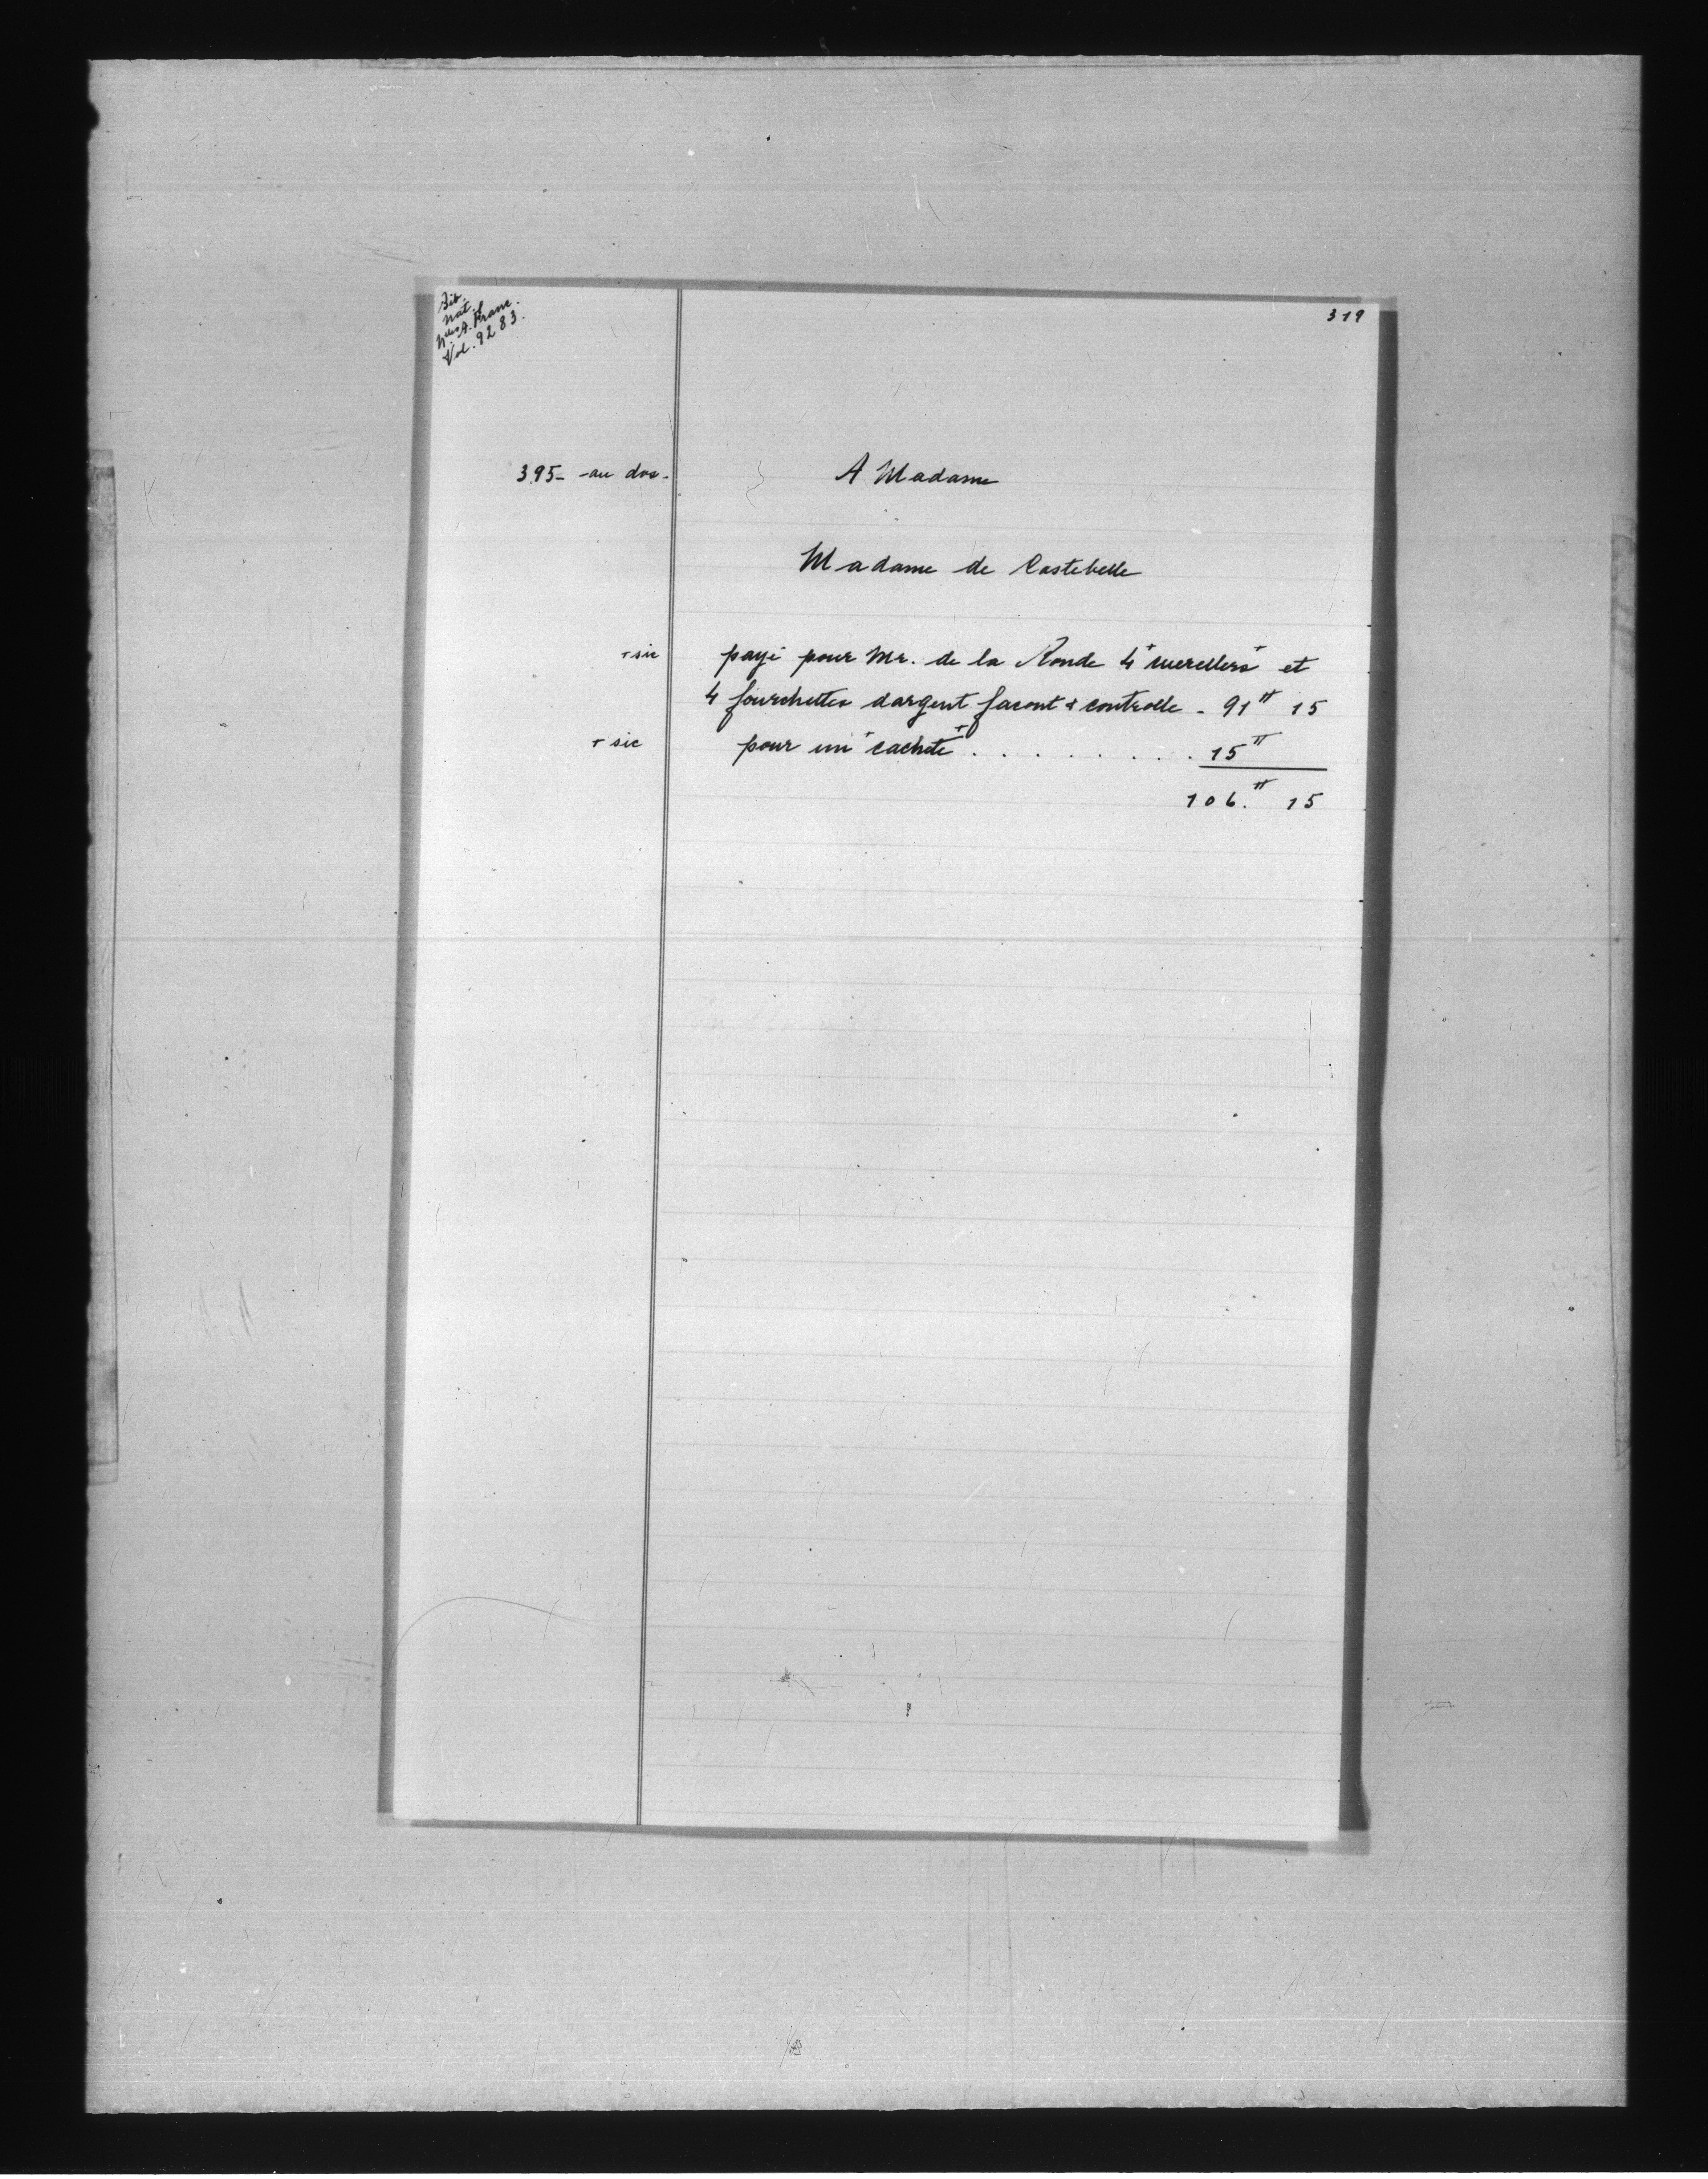 Bib.
Nat.
Nlles A. Franc.
Vol. 9283.
319
395 - au dos - A Madame
Madame de Costebelle
+ sic payé pour Mr. de la Ronde 4 "cuerellers" et
4 fourchettes dargent facont & controlle - 91# 15
+ sic pour un "cachete" . . . . . . . . . 15#
106.# 15